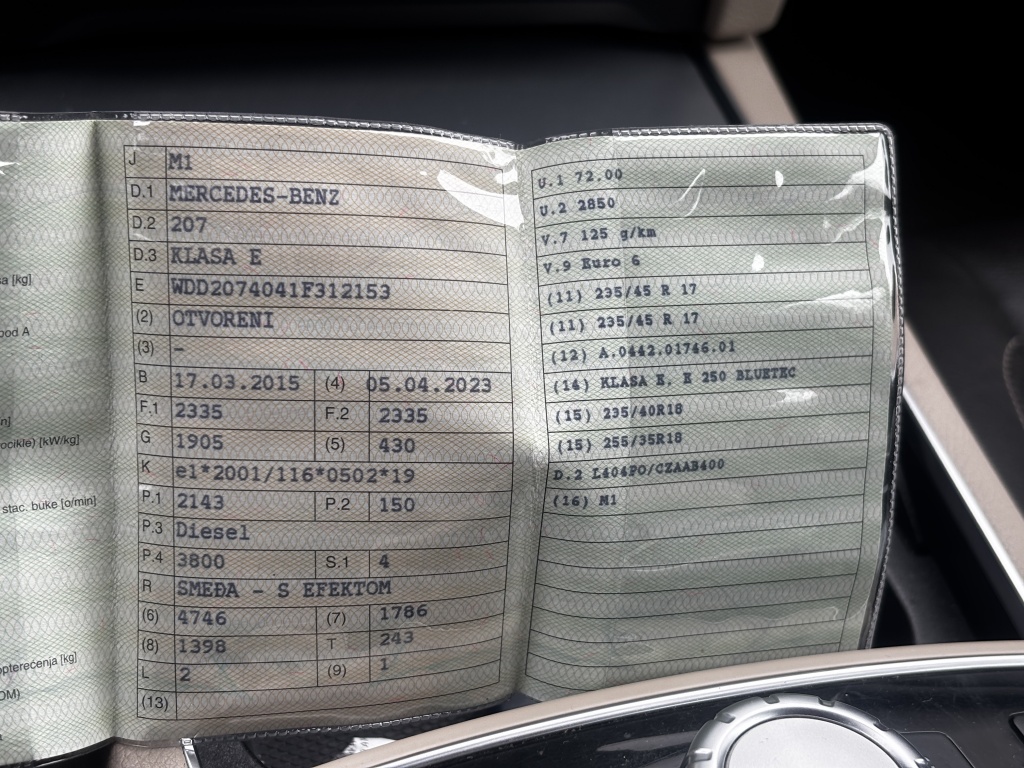 a [kg]
pod A
n]
ocikle) [kW/kg]
stac. buke [o/min]
opterećenja [kg]
OM)
J M1
D.1 MERCEDES-BENZ
D.2 207
D.3 KLASA E
E WDD2074041F312153
(2) OTVORENI
(3) –
B 17.03.2015 (4) 05.04.2023
F.1 2335 F.2 2335
G 1905 (5) 430
K e1*2001/116*0502*19
P.1 2143 P.2 150
P.3 Diesel
P.4 3800 S.1 4
R SMEĐA - S EFEKTOM
(6) 4746 (7) 1786
(8) 1398 T 243
L 2 (9) 1
(13)
U.1 72.00
U.2 2850
V.7 125 g/km
V.9 Euro 6
(11) 235/45 R 17
(11) 235/45 R 17
(12) A.0442.01746.01
(14) KLASA E, E 250 BLUETEC
(15) 235/40R18
(15) 255/35R18
D.2 L404P0/CZAAB400
(16) M1